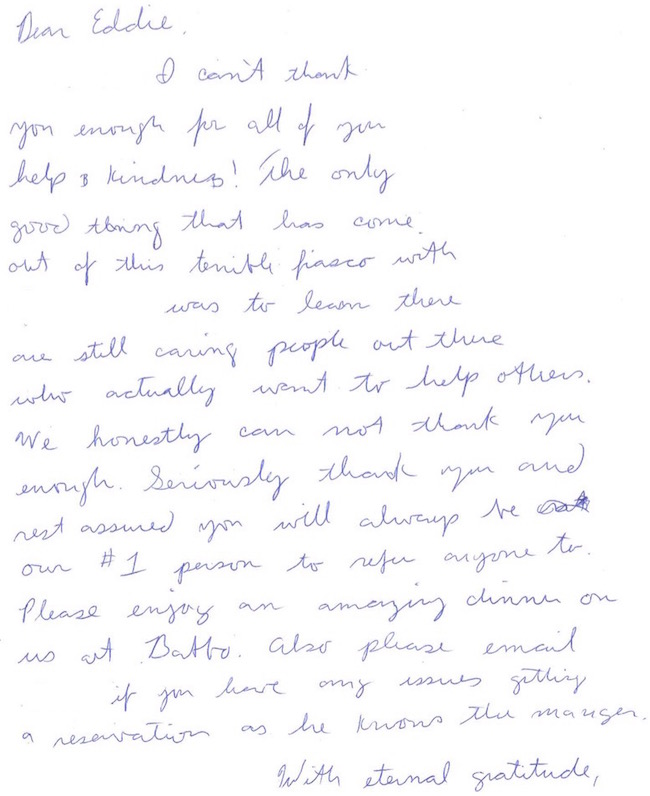 Dear Eddie,
I can't thank
you enough for all of you
help & kindness! The only
good thing that has come
out of this terrible fiasco with
was to learn there
are still caring people out there
who actually want to help others.
We honestly can not thank you
enough. Seriously thank you and
rest assured you will always be
our #1 person to refer anyone to.
Please enjoy an amazing dinner on
us at Babbo. Also please email
if you have any issues getting
a reservation as he knows the manger.
With eternal gratitude,